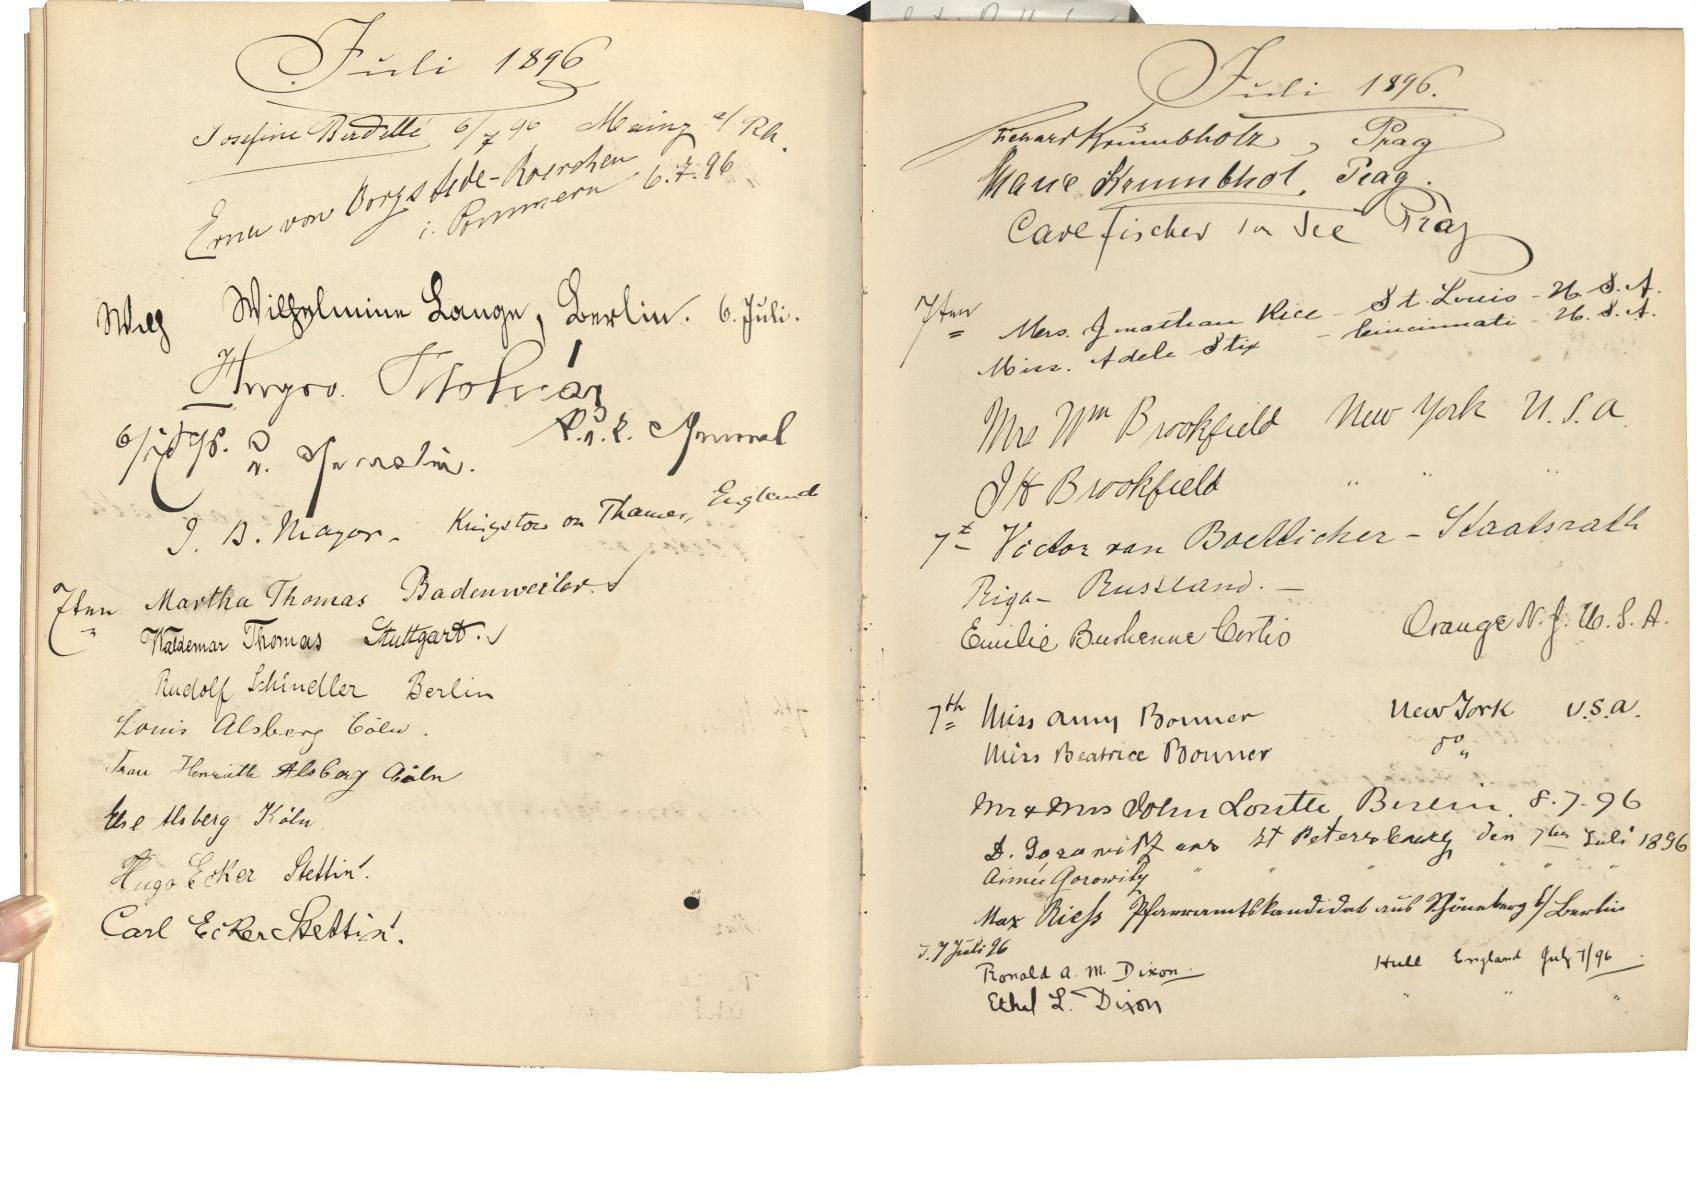 Juli 1896
Josefine Birdelli 6/7 96 Mainz a/Rh.
Erna von Borgstede-Roerchen
i. Pommern 6.7.96
Wilh Wilhelmine Lange, Berlin. 6. Juli.
K. u. K. Admiral
J. B. Mayor - Kingston on Thames, England
7ten Martha Thomas Badenweiler.
Waldemar Thomas Stuttgart.
Rudolf Schindler Berlin
Louis Alsberg Cöln.
Frau Henriette Alsberg Cöln
Else Alsberg Köln
Hugo Ecker Stettin!
Carl Ecker Stettin!
Juli 1896.
Krumbholz, Prag
Marie Krumbhol. Prag.
Carl Fischer Prag
7ten Mrs. Jonathan Rice - St. Louis - U. S. A.
Miss. Adele Stix - Cincinnati - U. S. A.
Mrs Wm Brookfield New York U. S. A.
J H Brookfield " "
7t Victor van Boetticher - Staatsrath
Riga - Russland. -
Emilie Curtis Orange N. J. U. S. A.
7th Miss Amy Bonner New York U.S.A.
Miss Beatrice Bonner do "
Mr & Mrs John Berlin. 8.7.96
D. Gorowitz aus St Petersburg den 7ten Juli 1896
Aimée Gorowitz " " " " "
Max Riess Pfarramtskandidat aus Schöneberg b/Berlin
d. 7 Juli 96
Ronald A. M. Dixon. Hull England July 7/96
Ethel L. Dixon " " "